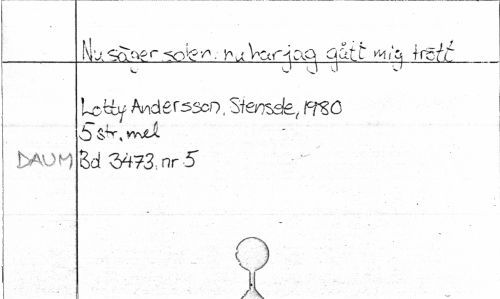 Nu säger solen: nu har jag gått mig trött
Lotty Andersson, Stensele, 1980
5 str. mel
DAUM Bd 3473, nr 5